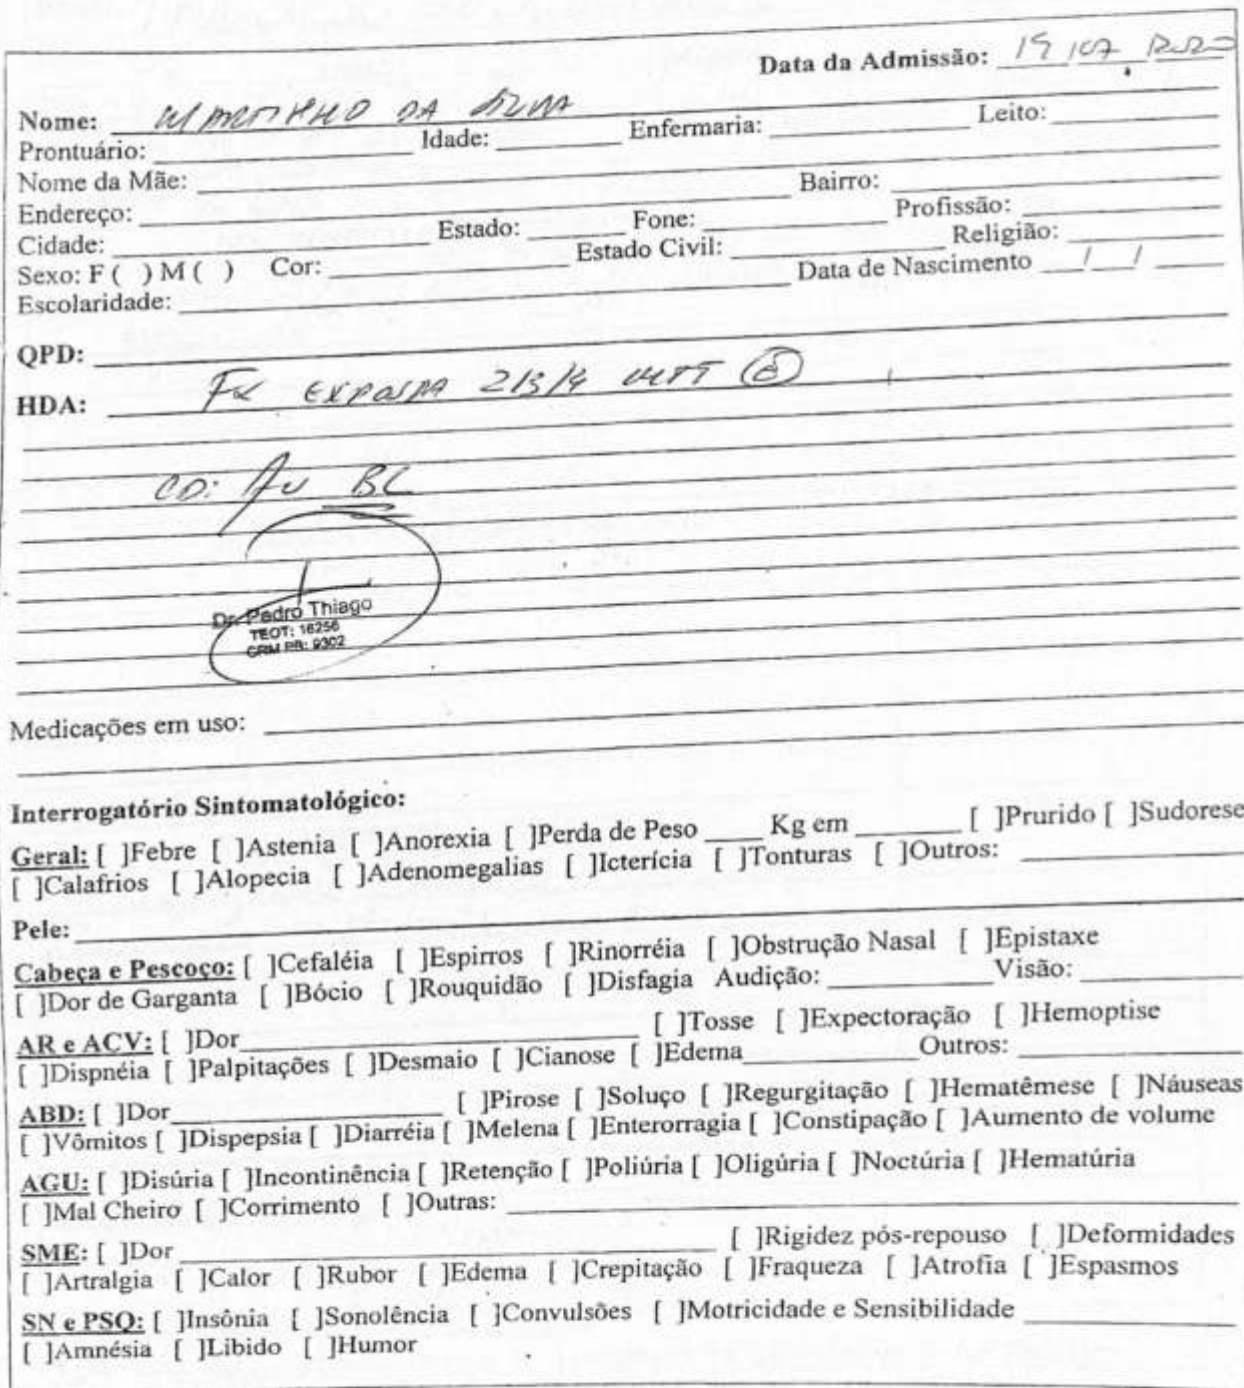 Data da Admissão: 19/07/2020
Nome: MARTINHO DA SILVA
Prontuário: Idade: Enfermaria: Leito:
Nome da Mãe:
Endereço: Bairro:
Cidade: Estado: Fone: Profissão:
Sexo: F ( ) M ( ) Cor: Estado Civil: Religião:
Escolaridade: Data de Nascimento / /
QPD:
HDA: Fx EXPOSTA 2/3/4 MTT (E)
CD: BL
Dr. Pedro Thiago
TEOT: 16256
CRM PB: 9302
Medicações em uso:
Interrogatório Sintomatológico:
Geral: [ ]Febre [ ]Astenia [ ]Anorexia [ ]Perda de Peso ____ Kg em ____ [ ]Prurido [ ]Sudorese
[ ]Calafrios [ ]Alopecia [ ]Adenomegalias [ ]Icterícia [ ]Tonturas [ ]Outros:
Pele:
Cabeça e Pescoço: [ ]Cefaléia [ ]Espirros [ ]Rinorréia [ ]Obstrução Nasal [ ]Epistaxe
[ ]Dor de Garganta [ ]Bócio [ ]Rouquidão [ ]Disfagia Audição: Visão:
AR e ACV: [ ]Dor [ ]Tosse [ ]Expectoração [ ]Hemoptise
[ ]Dispnéia [ ]Palpitações [ ]Desmaio [ ]Cianose [ ]Edema Outros:
ABD: [ ]Dor [ ]Pirose [ ]Soluço [ ]Regurgitação [ ]Hematêmese [ ]Náuseas
[ ]Vômitos [ ]Dispepsia [ ]Diarréia [ ]Melena [ ]Enterorragia [ ]Constipação [ ]Aumento de volume
AGU: [ ]Disúria [ ]Incontinência [ ]Retenção [ ]Poliúria [ ]Oligúria [ ]Noctúria [ ]Hematúria
[ ]Mal Cheiro [ ]Corrimento [ ]Outras:
SME: [ ]Dor [ ]Rigidez pós-repouso [ ]Deformidades
[ ]Artralgia [ ]Calor [ ]Rubor [ ]Edema [ ]Crepitação [ ]Fraqueza [ ]Atrofia [ ]Espasmos
SN e PSQ: [ ]Insônia [ ]Sonolência [ ]Convulsões [ ]Motricidade e Sensibilidade
[ ]Amnésia [ ]Libido [ ]Humor